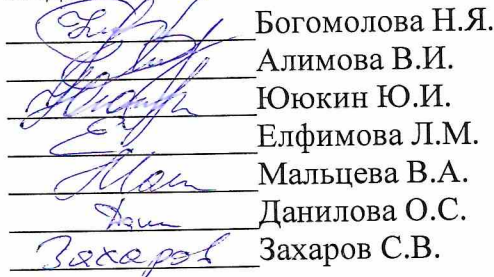 Богомолова Н.Я.
Алимова В.И.
Ююкин Ю.И.
Елфимова Л.М.
Мальцева В.А.
Данилова О.С.
Захаров Захаров С.В.